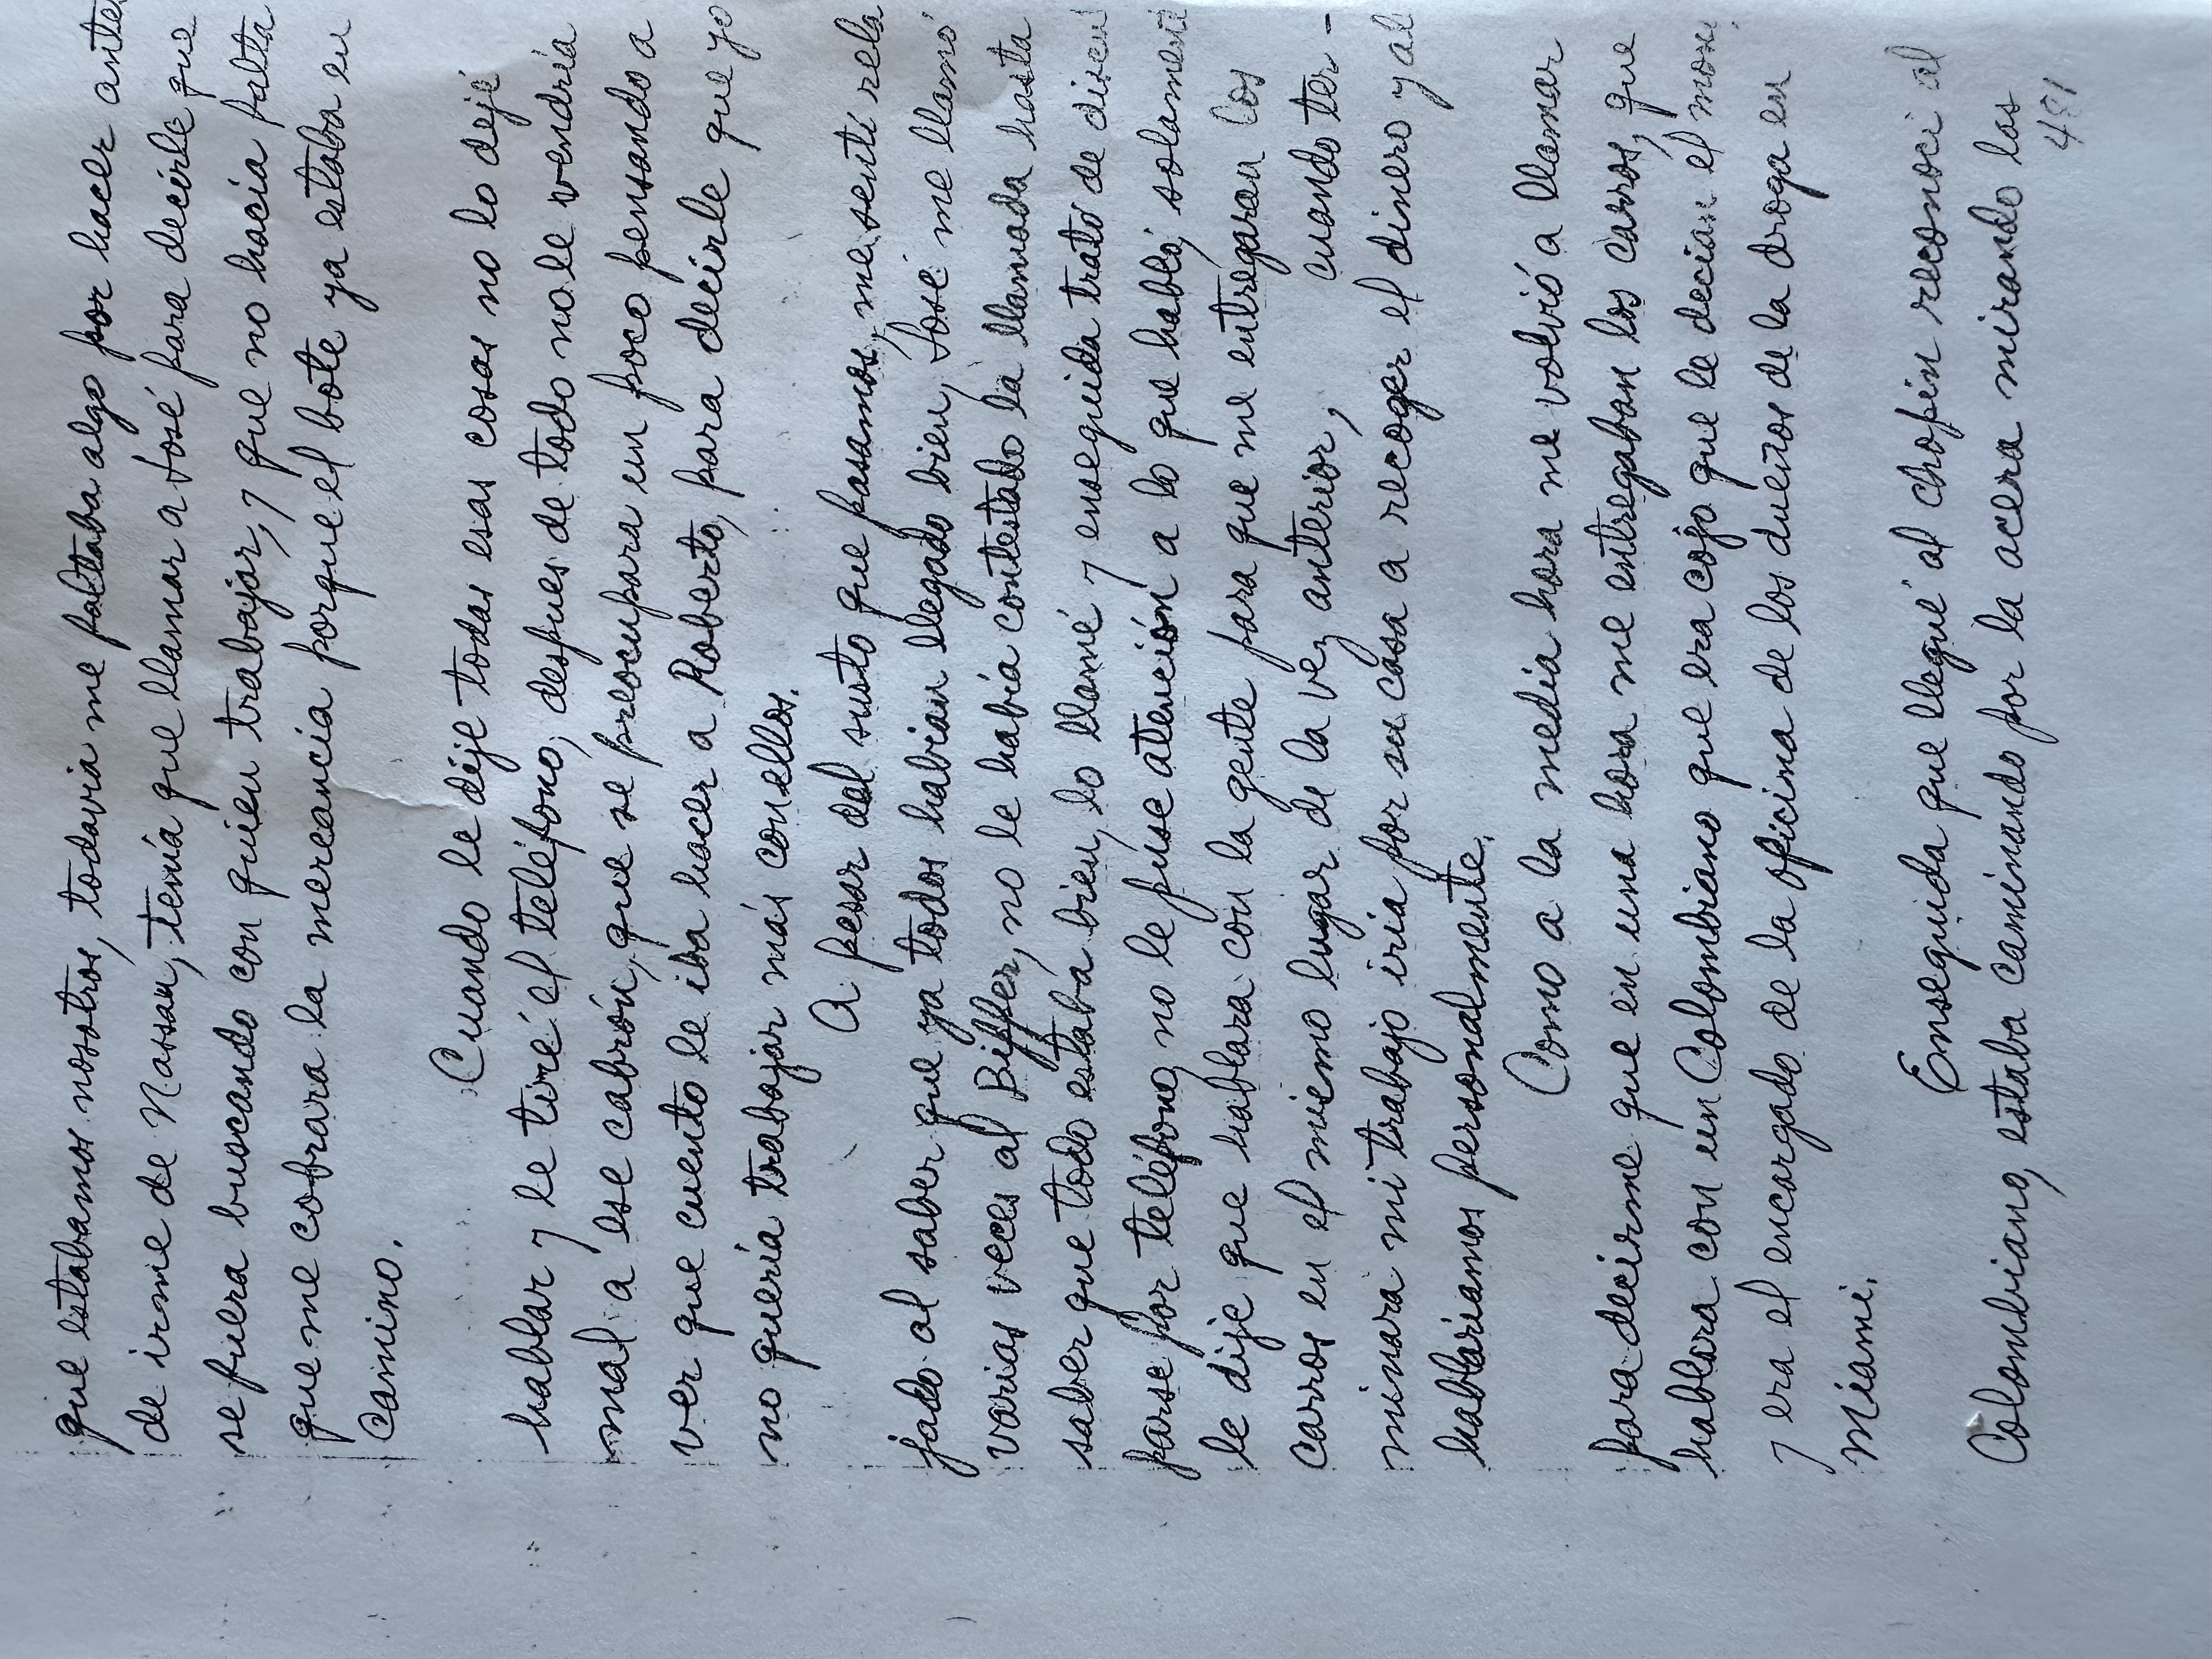 que estabamos nosotros, todavia me faltaba algo por hacer antes
de irme de Nassau, tenía que llamar a José para decirle que
se fuera buscando con quien trabajar, y que no hacia falta
que me cobrara la mercancia porque el bote ya estaba en
camino.
Cuando le dije todas esas cosas no lo dejé
hablar y le tiré el teléfono, despues de todo no le vendría
mal a ese cabrón, que se preocupara un poco pensando a
ver que cuento le iba hacer a Roberto, para decirle que yo
no quería trabajar más con ellos.
A pesar del susto que pasamos, me sentí rela
jado al saber que ya todos habian llegado bien, José me llamó
varias veces al Biffer, no le había contestado la llamada hasta
saber que todo estaba bien, lo llamé y enseguida trató de discul
parse por teléfono, no le puse atención a lo que habló, solament
le dije que hablara con la gente para que me entregaran los
carros en el mismo lugar de la vez anterior, cuando ter -
minara mi trabajo iria por su casa a recoger el dinero y al
hablariamos personalmente.
Como a la media hora me volvió a llamar
para decirme que en una hora me entregaban los carros, que
hablara con un Colombiano que era cojo que le decian el
y era el encargado de la oficina de los dueños de la droga en
Miami.
Enseguida que llegué al chopin reconoci al
Colombiano, estaba caminando por la acera mirando las
481